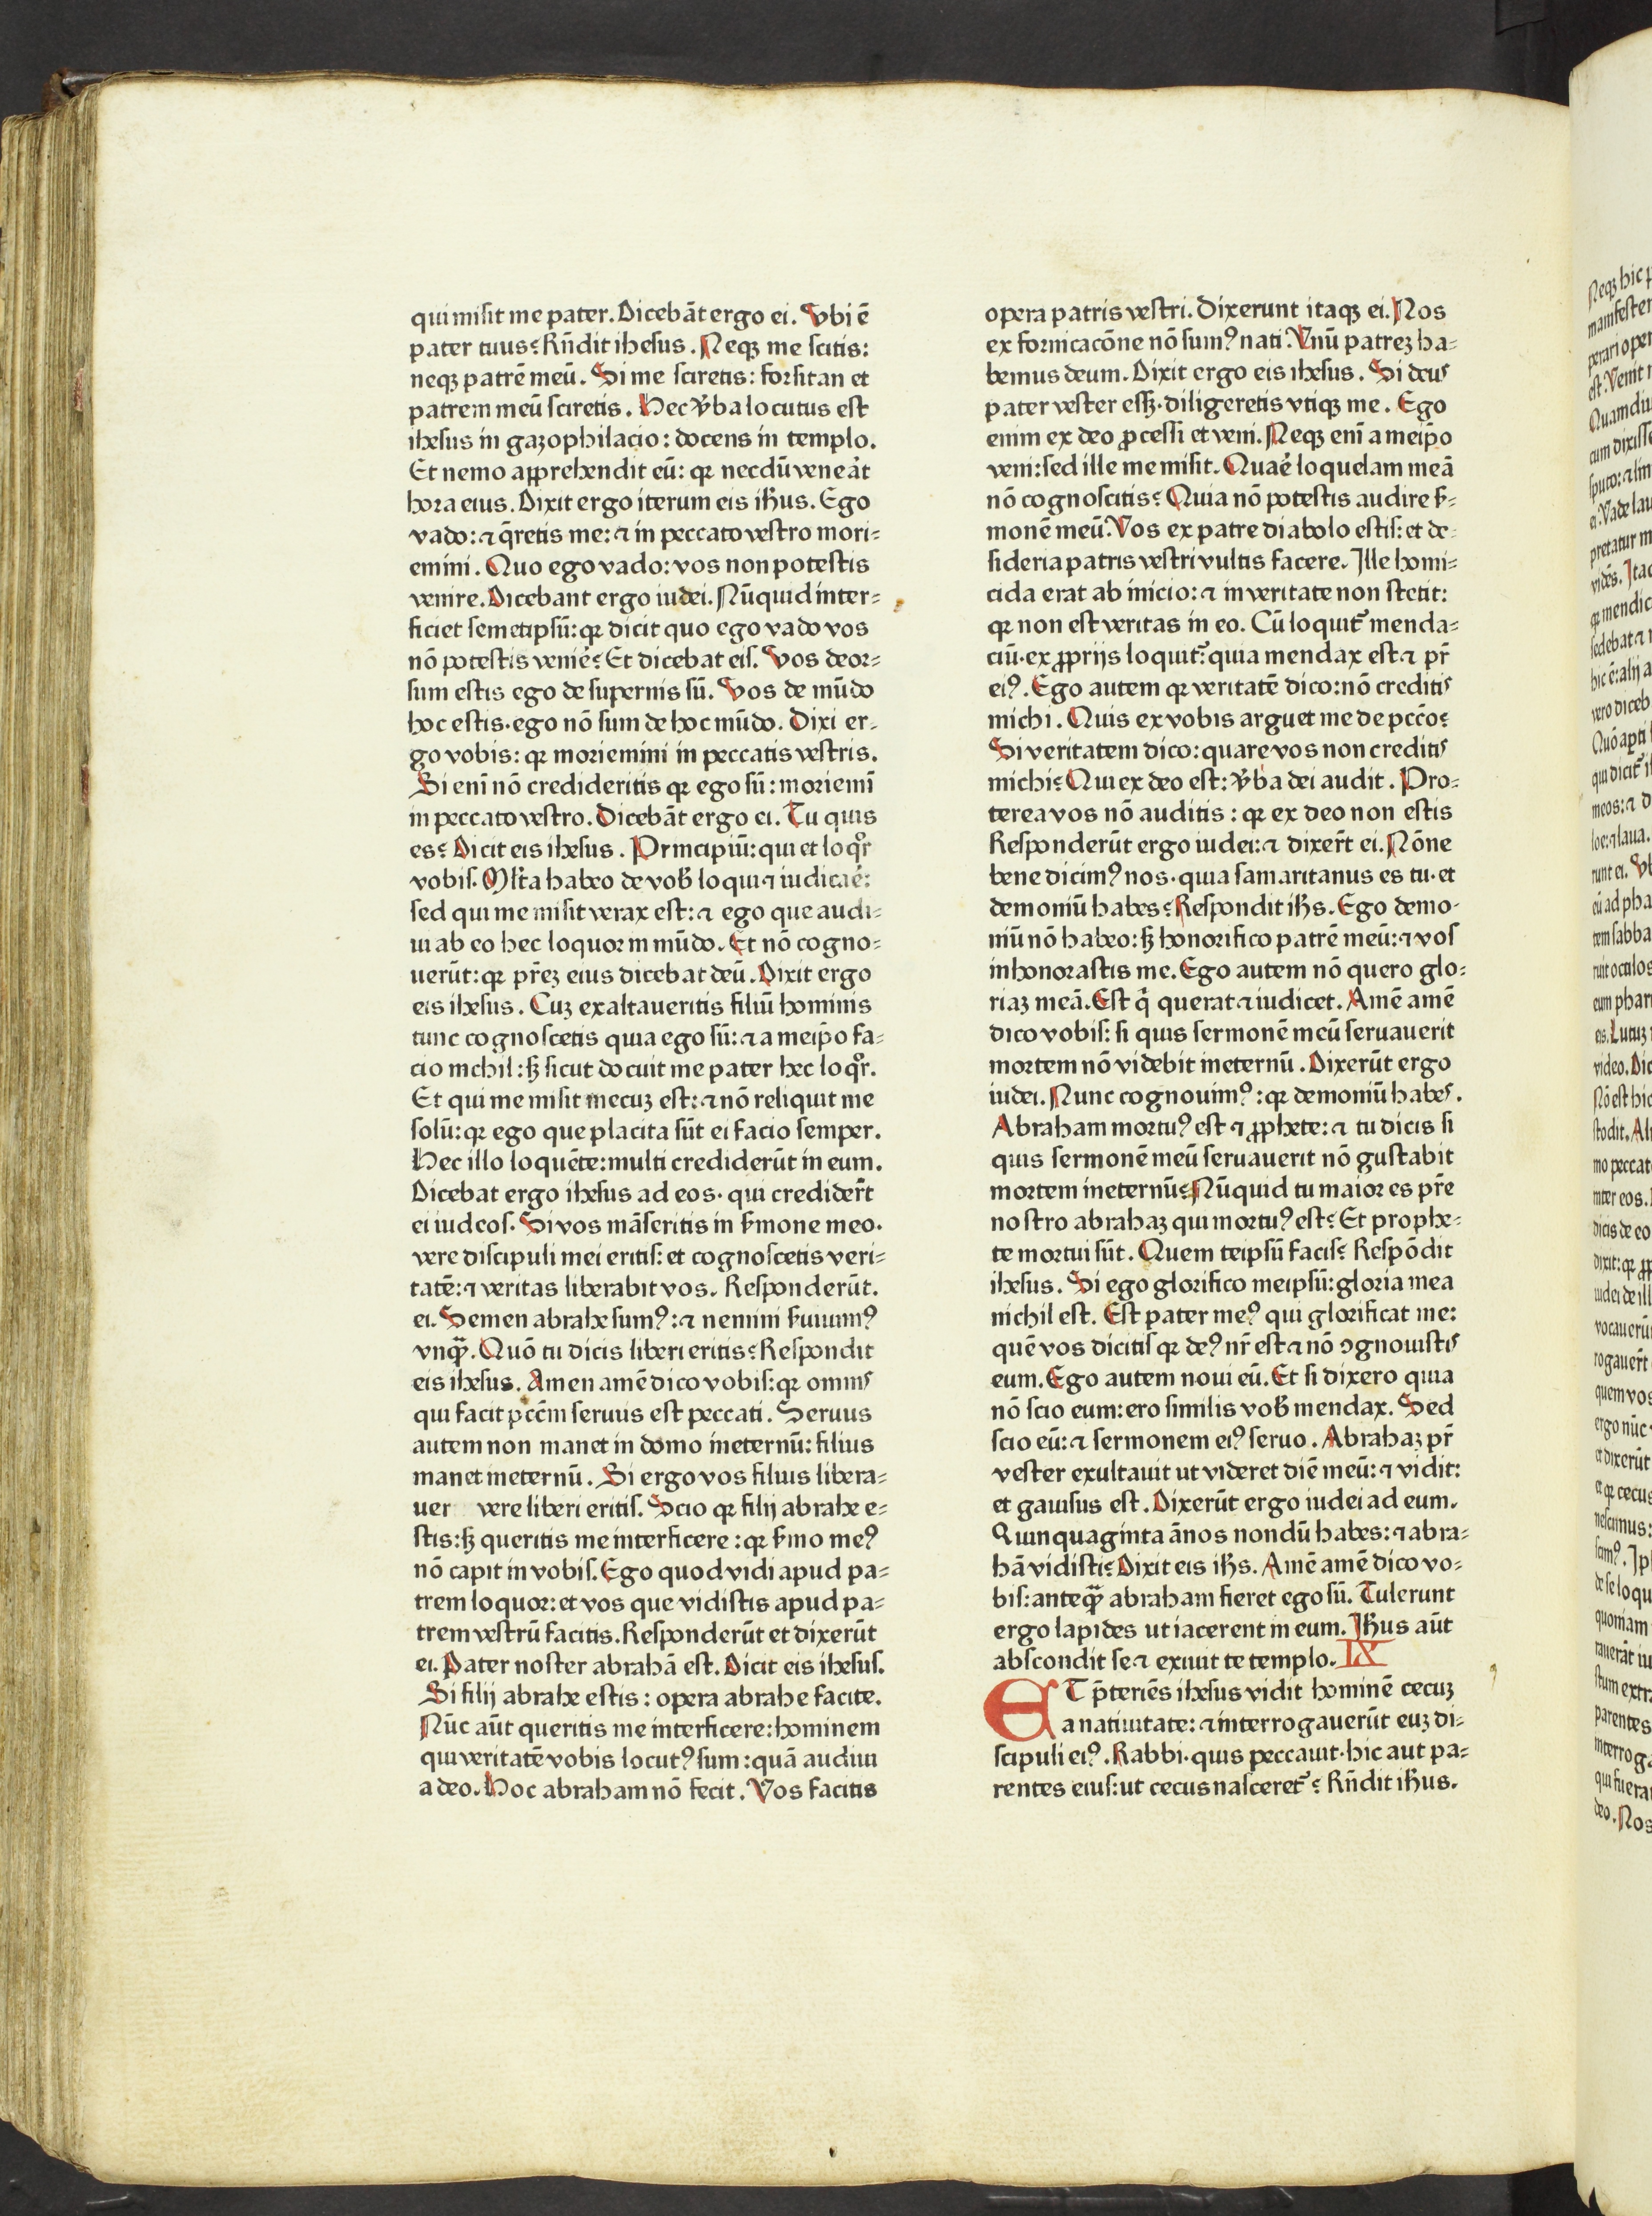 qui misit me pater. Dicebāt ergo ei. Vbi ē
pater tuus? Rn̄dit ihesus. Neqꝫ me scitis:
neqꝫ patrē meū. Si me sciretis: forsitan et
patrem meū sciretis. Hec v̄ba locutus est
ihesus in gazophilacio: docens in templo.
Et nemo apprehendit eū: qꝛ necdū veneat̉
hora eius. Dixit ergo iterum eis ih̄us. Ego
vado: ⁊ q̄retis me: ⁊ in peccato vestro mori=
emini. Quo ego vado: vos non potestis
venire. Dicebant ergo iudei. Nūquid inter=
ficiet semetipsū: qꝛ dicit quo ego vado vos
nō potestis venie̍? Et dicebat eis. Vos deor=
sum estis ego de supernis sū. Vos de mūdo
hoc estis· ego nō sum de hoc mūdo. Dixi er=
go vobis: qꝛ moriemini in peccatis vestris.
Si enī nō credideritis qꝛ ego sū: moriemī
in peccato vestro. Dicebāt ergo ei. Tu quis
es? Dicit eis ihesus. Principiū: qui et loqͦr
vobis. Ml̄ta habeo de vob̄ loqui ⁊ iudicae̍:
sed qui me misit verax est: ⁊ ego que audi=
ui ab eo hec loquor in mūdo. Et nō cogno=
uerūt: qꝛ pr̄eꝫ eius dicebat deū. Dixit ergo
eis ihesus. Cuꝫ exaltaueritis filiū hominis
tunc cognoscetis quia ego sū: ⁊ a meip̄o fa=
cio nichil: sꝫ sicut docuit me pater hec loqͦr.
Et qui me misit mecuꝫ est: ⁊ nō reliquit me
solū: qꝛ ego que placita sūt ei facio semper.
Hec illo loquēte: multi crediderūt in eum.
Dicebat ergo ihesus ad eos· qui credider̄t
ei iudeos. Si vos māseritis in s̄mone meo·
vere discipuli mei eritis: et cognoscetis veri=
tatē: ⁊ veritas liberabit vos. Responderūt.
ei. Semen abrahe sumꝰ: ⁊ nemini s̄uiuimꝰ
vnqꝫ̄. Quō tu dicis liberi eritis? Respondit
eis ihesus. Amen amē dico vobis: qꝛ omnis
qui facit pccm̄ seruus est peccati. Seruus
autem non manet in domo ineternū: filius
manet ineternū. Si ergo vos filius libera=
uer vere liberi eritis. Scio qꝛ filij abrahe e=
stis: sꝫ queritis me interficere: qꝛ s̄mo meꝰ
nō capit in vobis. Ego quod vidi apud pa=
trem loquor: et vos que vidistis apud pa=
trem vestrū facitis. Responderūt et dixerūt
ei. Pater noster abrahā est. Dicit eis ihesus.
Si filij abrahe estis: opera abrahe facite.
Nūc aūt queritis me interficere: hominem
qui veritatē vobis locutꝰ sum: quā audiui
a deo. Hoc abraham nō fecit. Vos facitis
opera patris vestri. Dixerunt itaqꝫ ei. Nos
ex fornicacōne nō sumꝰ nati. Vnū patreꝫ ha=
bemus deum. Dixit ergo eis ihesus. Si deus
pater vester essꝫ· diligeretis vtiqꝫ me. Ego
enim ex deo ꝓcessi et veni. Neqꝫ enī a meip̄o
veni: sed ille me misit. Quae̍ loquelam meā
nō cognoscitis? Quia nō potestis audire s̄=
monē meū. Vos ex patre diabolo estis: et de=
sideria patris vestri vultis facere. Ille homi=
cida erat ab inicio: ⁊ in veritate non stetit:
qꝛ non est veritas in eo. Cū loquit᷑ menda=
ciū· ex ꝓprijs loquit᷑: quia mendax est ⁊ pr̄
eiꝰ. Ego autem qꝛ veritatē dico: nō creditis
michi. Quis ex vobis arguet me de pccō?
Si veritatem dico: quare vos non creditis
michi? Qui ex deo est: v̄ba dei audit. Pro=
terea vos nō auditis: qꝛ ex deo non estis
Responderūt ergo iudei: ⁊ dixer̄t ei. Nōne
bene dicimꝰ nos· quia samaritanus es tu· et
demoniū habes? Respondit ih̄s. Ego demo=
niū nō habeo: sꝫ honorifico patrē meū: ⁊ vos
inhonorastis me. Ego autem nō quero glo=
riaꝫ meā. Est qͥ querat ⁊ iudicet. Amē amē
dico vobis: si quis sermonē meū seruauerit
mortem nō videbit ineternū. Dixerūt ergo
iudei. Nunc cognouimꝰ: qꝛ demoniū habes.
Abraham mortuꝰ est ⁊ ꝓphete: ⁊ tu dicis si
quis sermonē meū seruauerit nō gustabit
mortem ineternū? Nūquid tu maior es pr̄e
nostro abrahaꝫ qui mortuꝰ est? Et prophe=
te mortui sūt. Quem teipsū facis? Respōdit
ihesus. Si ego glorifico meipsū: gloria mea
nichil est. Est pater meꝰ qui glorificat me:
quē vos dicitis qꝛ deꝰ nr̄ est ⁊ nō ꝯgnouistis
eum. Ego autem noui eū. Et si dixero quia
nō scio eum: ero similis vob̄ mendax. Sed
scio eū: ⁊ sermonem eiꝰ seruo. Abrahaꝫ pr̄
vester exultauit ut videret diē meū: ⁊ vidit:
et gauisus est. Dixerūt ergo iudei ad eum.
Quinquaginta ānos nondū habes: ⁊ abra=
hā vidisti? Dixit eis ih̄s. Amē amē dico vo=
bis: anteqꝫ̄ abraham fieret ego sū. Tulerunt
ergo lapides ut iacerent in eum. Ih̄us aūt
abscondit se ⁊ exiuit te templo. IX
ET p̄teriēs ihesus vidit hominē cecuꝫ
a natiuitate: ⁊ interrogauerūt euꝫ di=
scipuli eiꝰ. Rabbi· quis peccauit· hic aut pa=
rentes eius: ut cecus nasceret᷑? Rn̄dit ih̄us.